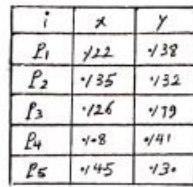 i x y
P1 ·/22 ·/38
P2 ·/35 ·/32
P3 ·/26 ·/19
P4 ·/·8 ·/41
P5 ·/45 ·/3·